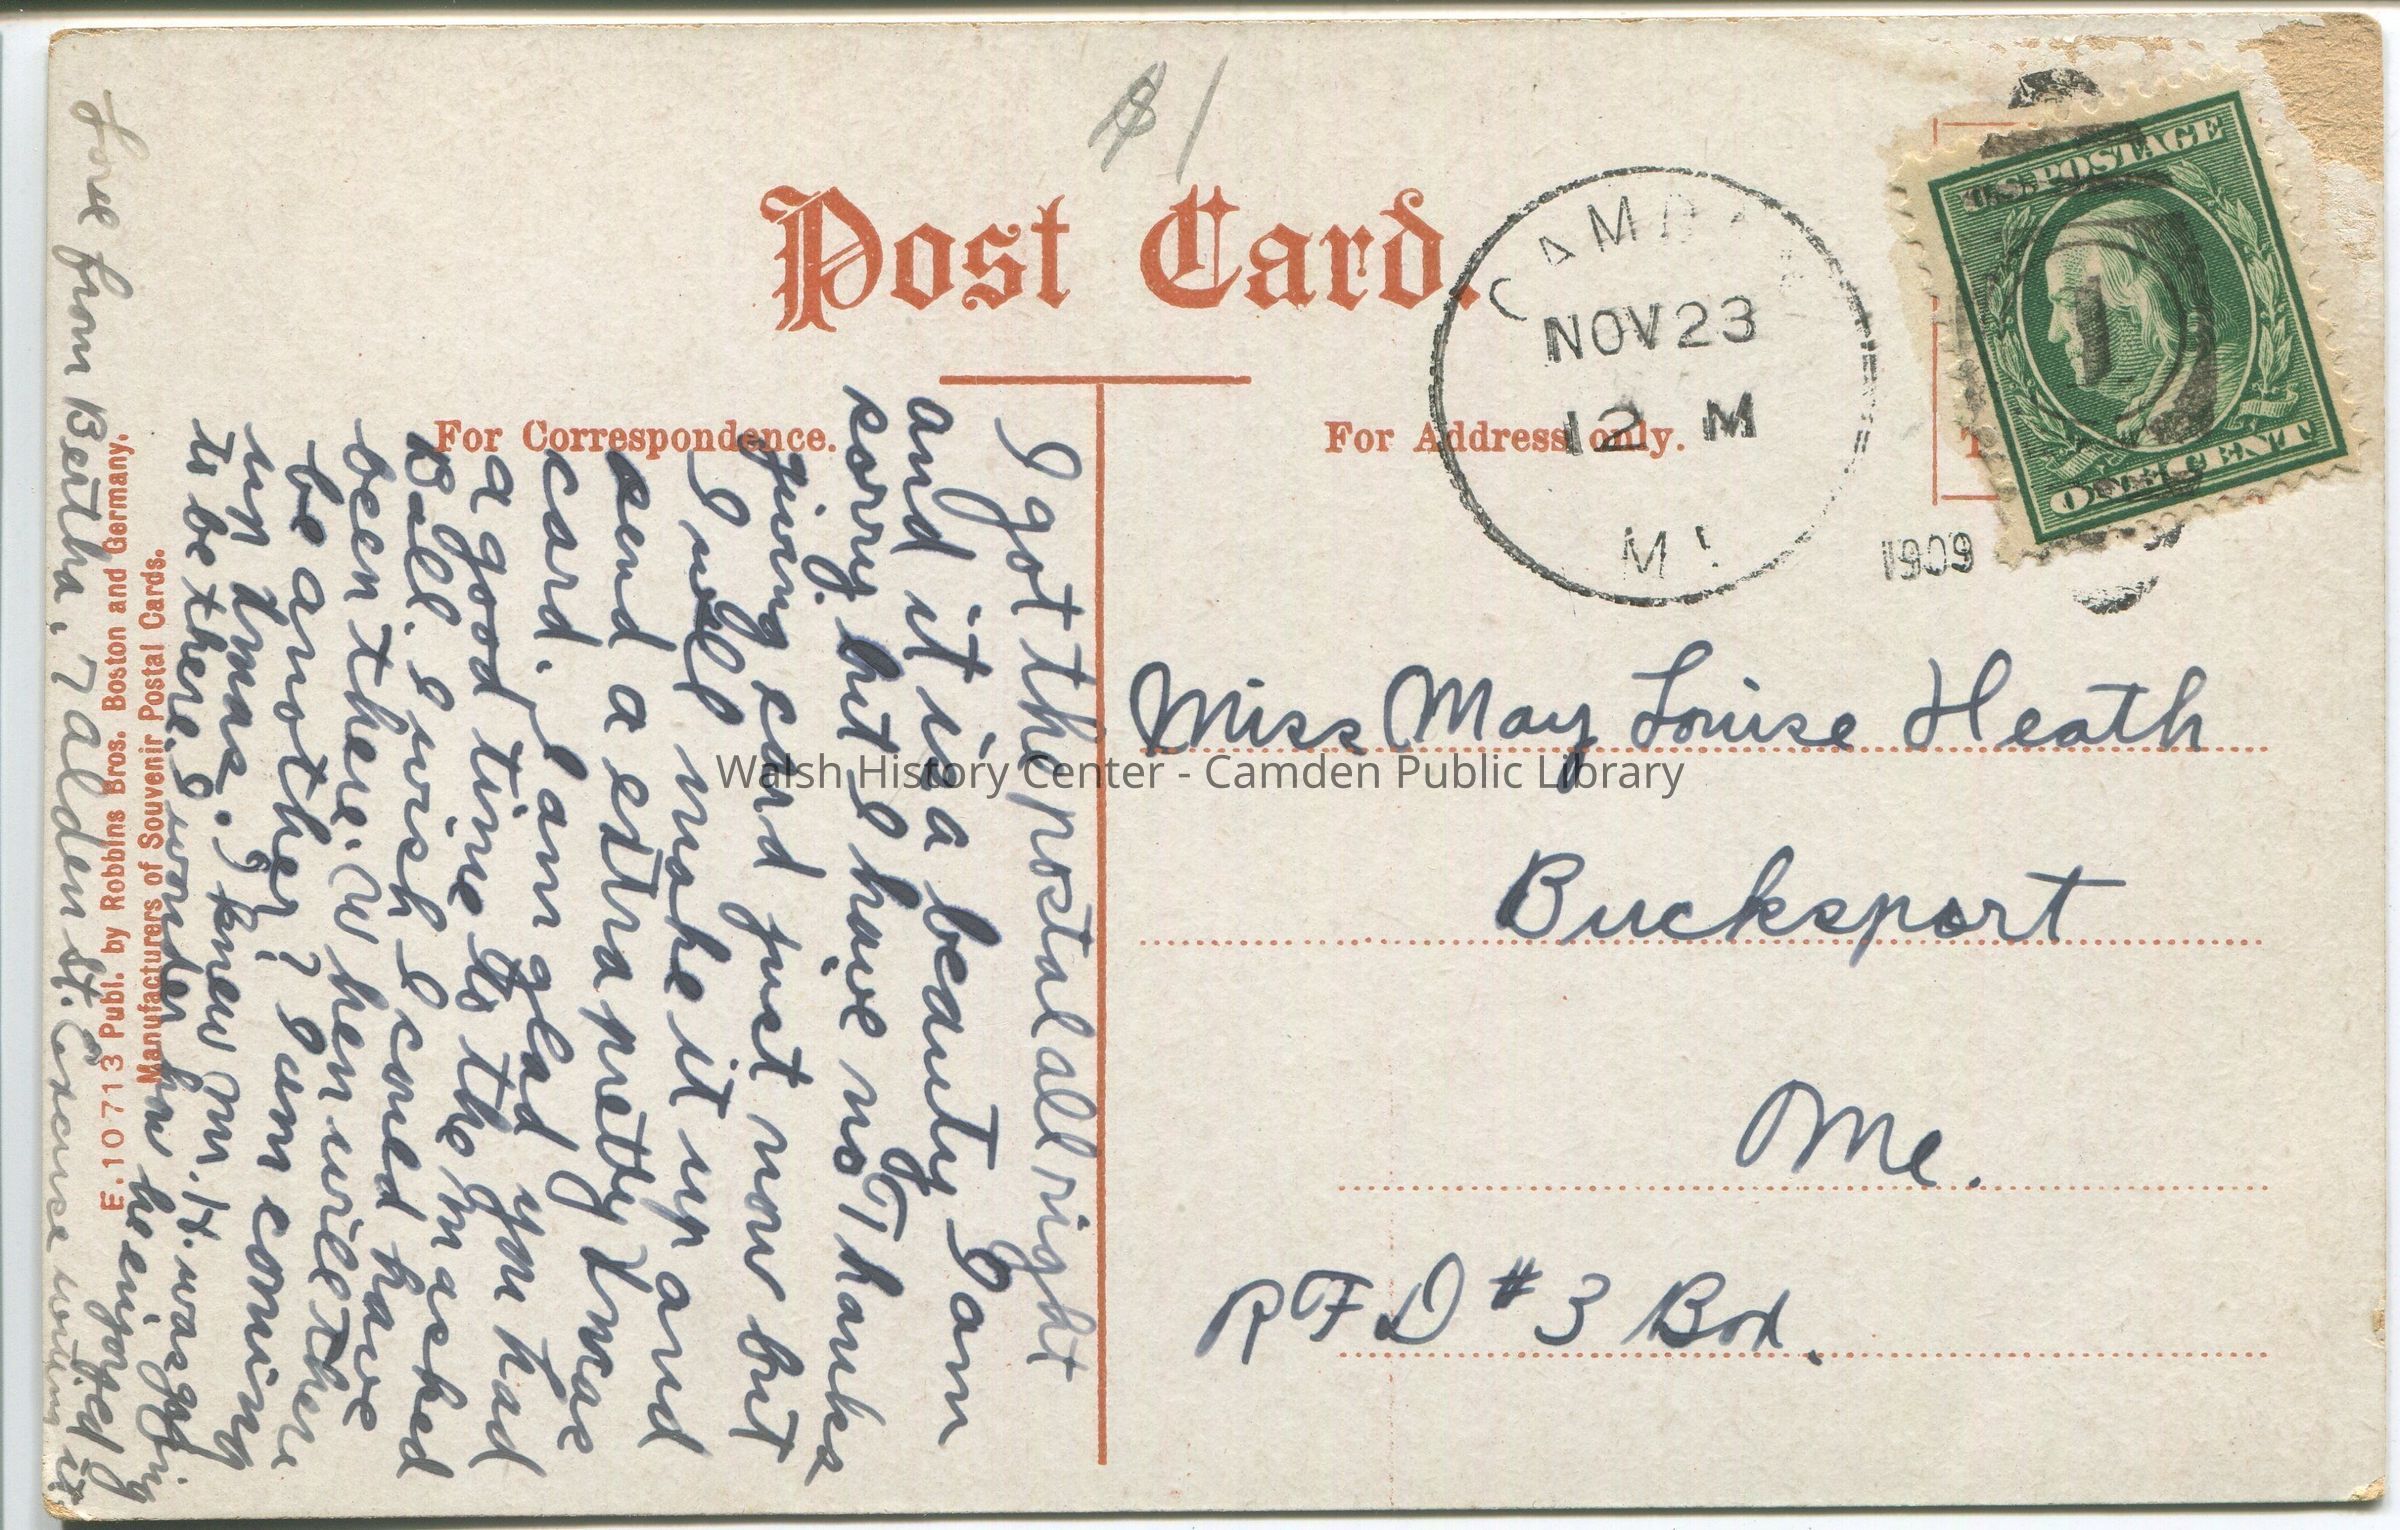 $1
Post Card.
For Correspondence.
For Address only.
CAMDEN
NOV 23
12 M
ME
1909
U.S. POSTAGE
1
ONE CENT
I got the postal all right
and it is a beauty I am
sorry but I have no Thanks
giving card just now but
I will make it up and
send a extra pretty Xmas
card. I am glad you had
a good time to the masked
Ball. I wish I coued have
been there. When will there
be another? I am coming
up Xmas. I knew Mr. H. was going
to be there. I wonder how he enjoyed
Love from Bertha. 7 Alden St. Excuse writing
it.
E. 10713 Publ. by Robbins Bros. Boston and Germany.
Manufacturers of Souvenir Postal Cards.
Miss May Louise Heath
Bucksport
Me.
RFD #3 Box.
Walsh History Center - Camden Public Library